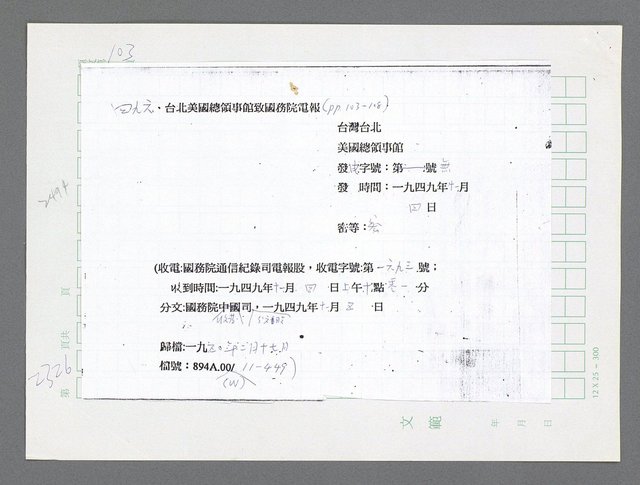 103
四九六、台北美國總領事館致國務院電報(pp 103-108)
台灣台北
美國總領事館
發電字號：第——號
發　時間：一九四九年十一月
四日
密等：
(收電:國務院通信紀錄司電報股，收電字號:第一六九三號；
收到時間:一九四九年十一月 四 日上午十點 一分
分文:國務院中國司，一九四九年十一月 五 日
歸檔:一九五〇年二月十六月
檔號：894A.00/ 11-449)
(W)
2494
頁
頁共
2326
第
12 X 25 - 300
文 範
年 月 日